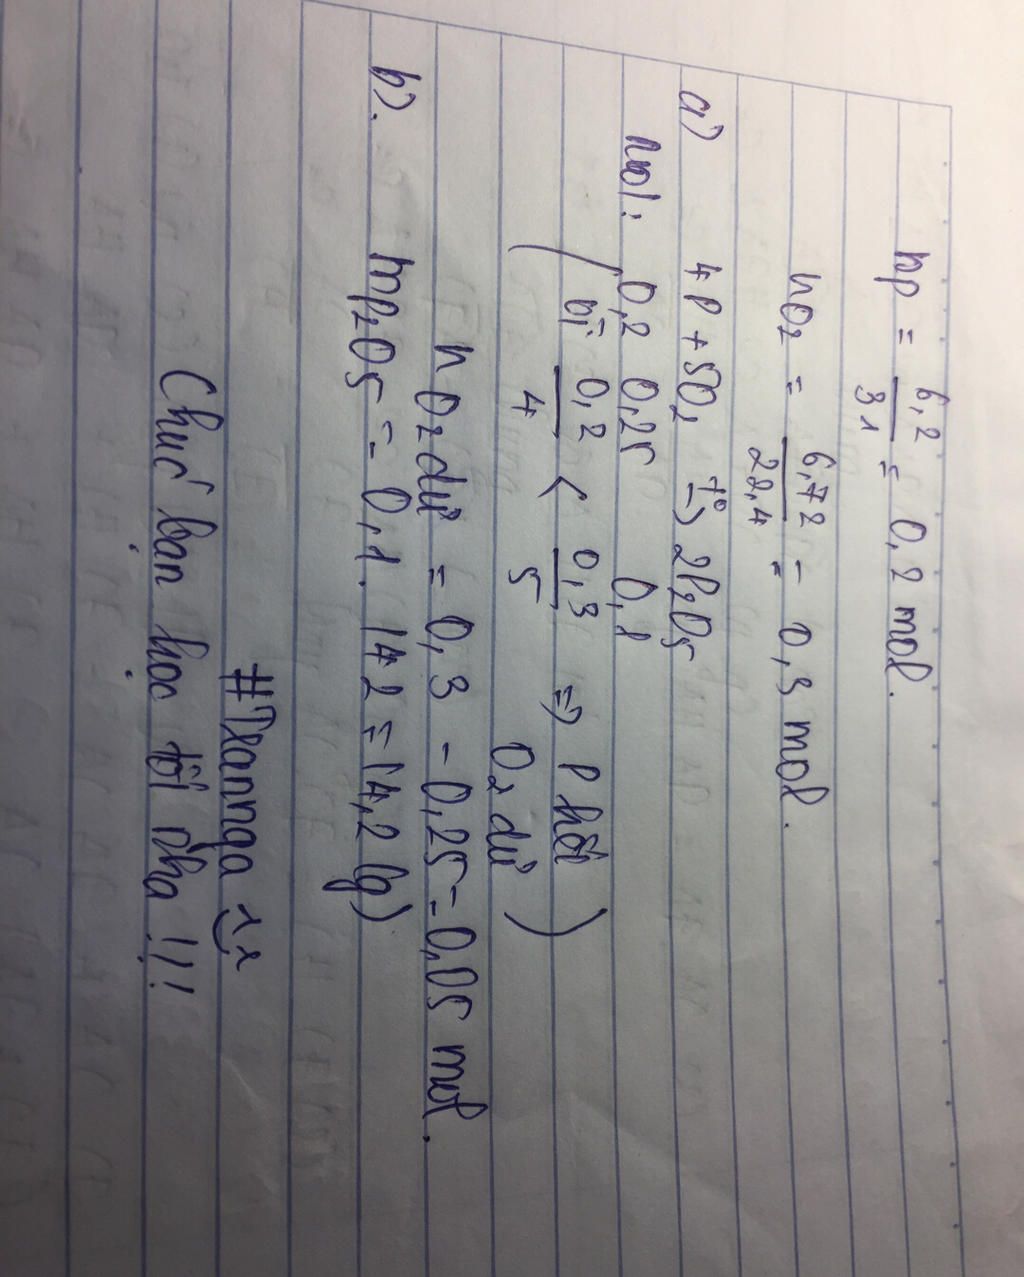 nP = 6,2/31 = 0,2 mol.
nO2 = 6,72/22,4 = 0,3 mol.
a) 4P + 5O2 t°→ 2P2O5
mol: 0,2 0,25 0,1
( Bì 0,2/4 < 0,3/5 => P hết
O2 dư )
nO2 dư = 0,3 - 0,25 = 0,05 mol.
b). mP2O5 = 0,1 . 142 = 14,2 (g)
Chúc bạn học tốt nha !!!